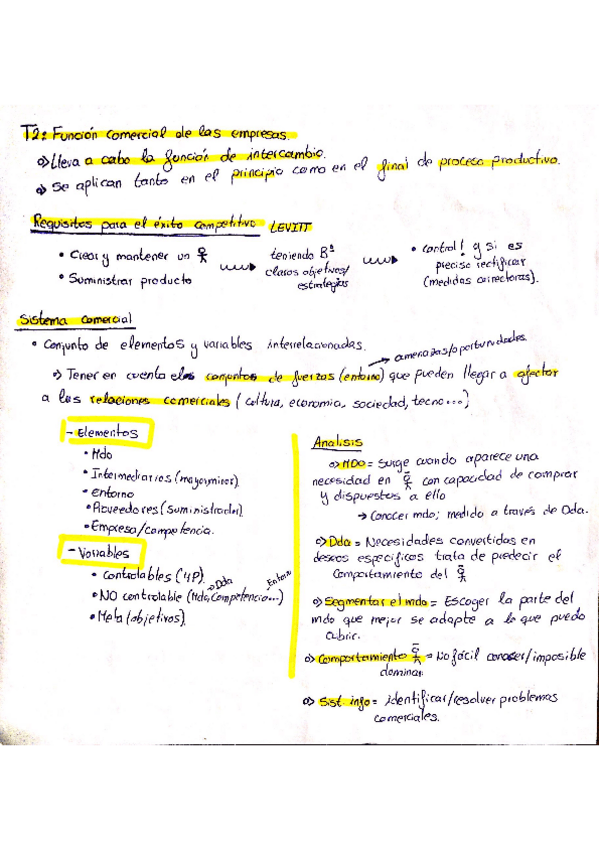 T2: Función comercial de las empresas.
Lleva a cabo la función de intercambio.
Se aplican tanto en el principio como en el final de proceso productivo.
Requisitos para el éxito competitivo LEVITT
• Crear y mantener un
• Suministrar producto
teniendo Bº
claros objetivos/
estrategias
• control! y si es
preciso rectificar
(medidas correctoras).
Sistema comercial
• Conjunto de elementos y variables interrelacionadas.
amenazas/oportunidades.
Tener en cuenta el conjuntos de fuerzas (entorno) que pueden llegar a afectar
a las relaciones comerciales (cultura, economía, sociedad, tecno...)
- Elementos
• Mdo
• Intermediarios (mayor/minor).
• entorno
• Proveedores (suministrador)
• Empresa/competencia.
- Variables
• Controlables (4P).
Dda Entorno
• NO controlable (Mdo, Competencia...)
• Meta (objetivos).
Analisis
MDO = Surge cuando aparece una
necesidad en con capacidad de comprar
y dispuestos a ello
→ Conocer mdo; medido a través de Dda.
Dda = Necesidades convertidas en
deseos específicos trata de predecir el
comportamiento del
Segmentar el mdo = Escoger la parte del
mdo que mejor se adapte a lo que puedo
cubrir.
Comportamiento = No fácil conocer/imposible
dominar.
Sist. info = identificar/resolver problemas
comerciales.